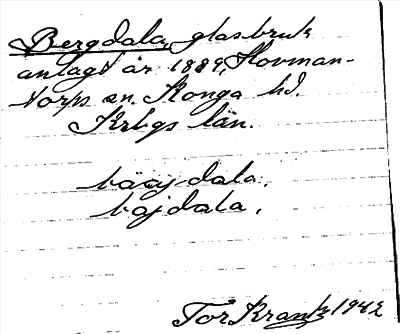 Bergdala, glasbruk
anlagt år 1889, Hovman-
torps sn. Konga hd.
Krbgs län.
bäaj dala.
bajdala.
Tor Krantz 1942